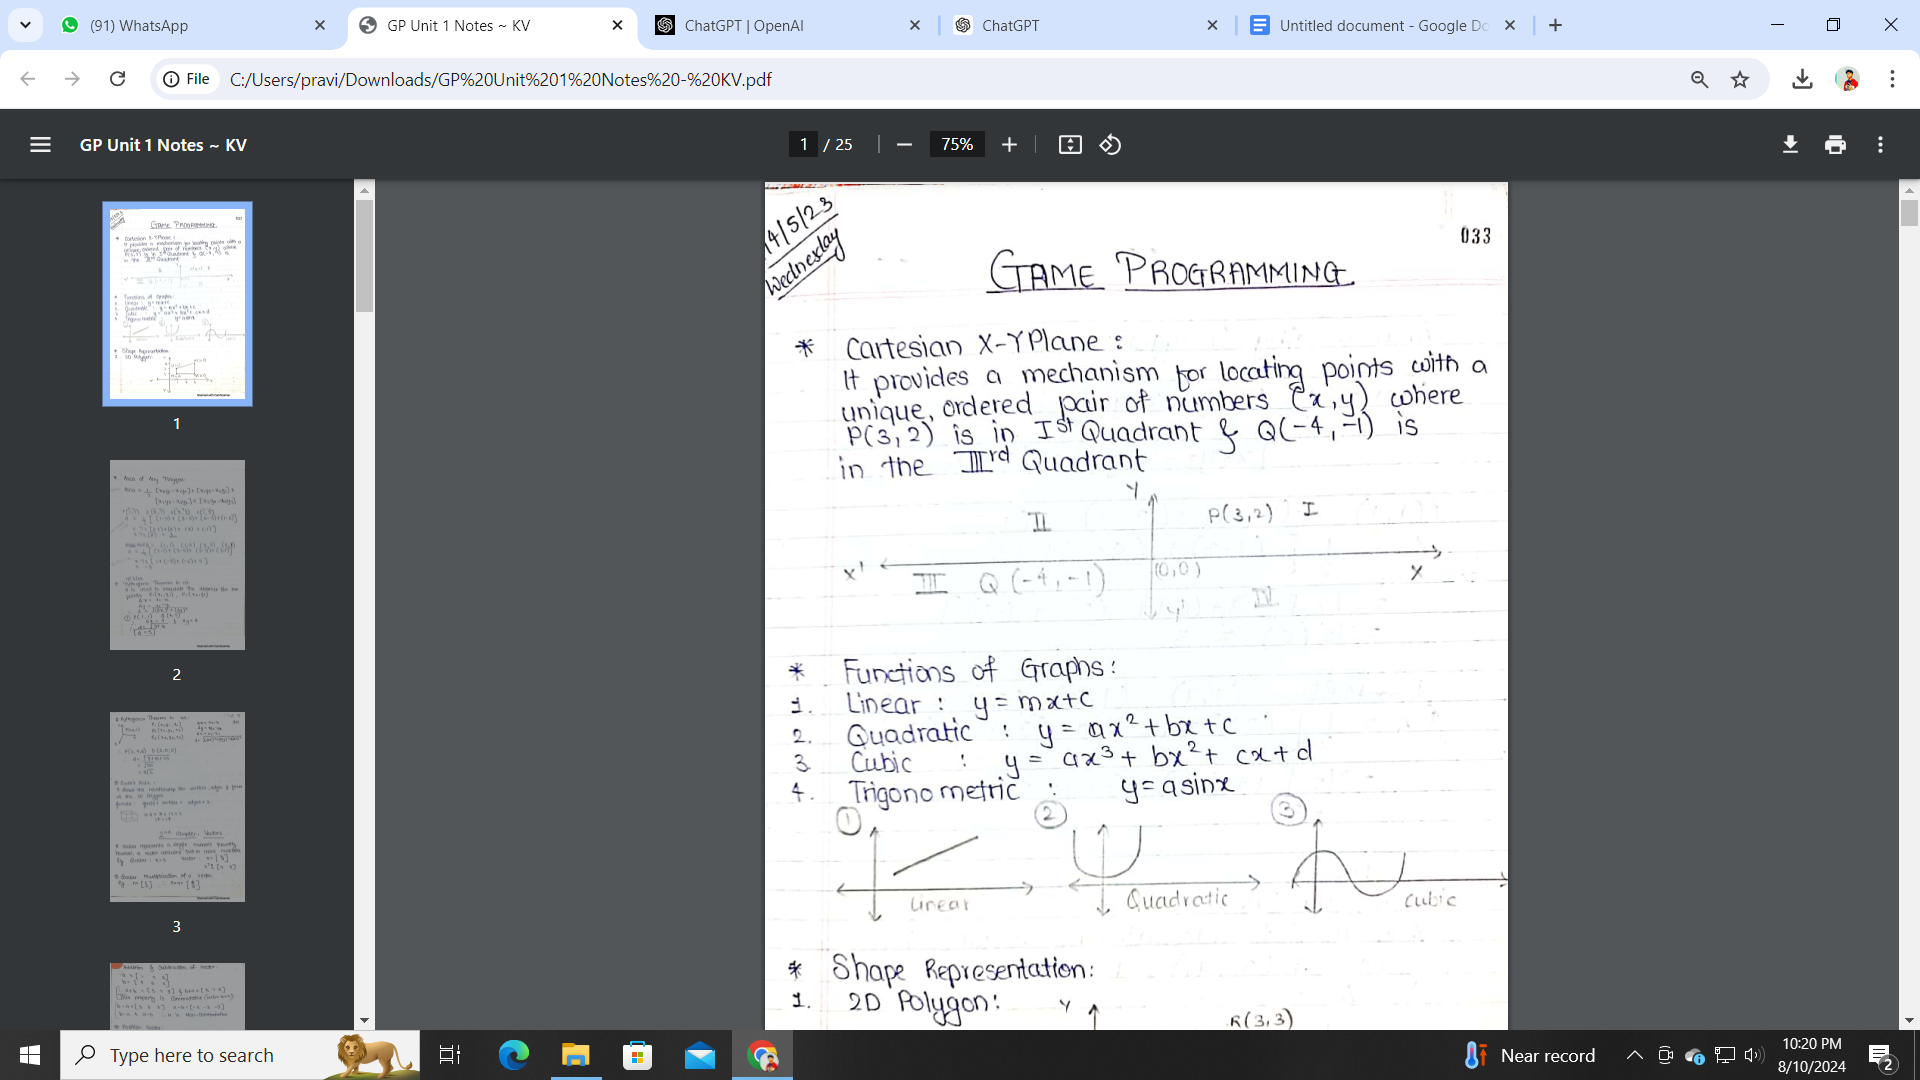 (91) WhatsApp
GP Unit 1 Notes ~ KV
ChatGPT | OpenAI
ChatGPT
Untitled document - Google Do
File
C:/Users/pravi/Downloads/GP%20Unit%201%20Notes%20-%20KV.pdf
GP Unit 1 Notes ~ KV
1 / 25
75%
1
2
3
4/5/23
Wednesday
033
GAME PROGRAMMING
* Cartesian X-Y Plane :
It provides a mechanism for locating points with a
unique, ordered pair of numbers (x,y) where
P(3,2) is in Ist Quadrant & Q(-4,-1) is
in the IIIrd Quadrant
Y
II P(3,2) I
X' (0,0) X
III Q (-4,-1)
Y' IV
* Functions of Graphs:
1. Linear : y = mx+c
2. Quadratic : y = ax² + bx + c
3. Cubic : y = ax³ + bx² + cx + d
4. Trigonometric : y = asinx
1 2 3
Linear Quadratic Cubic
* Shape Representation:
1. 2D Polygon: Y
R(3,3)
Type here to search
Near record
10:20 PM
8/10/2024
2